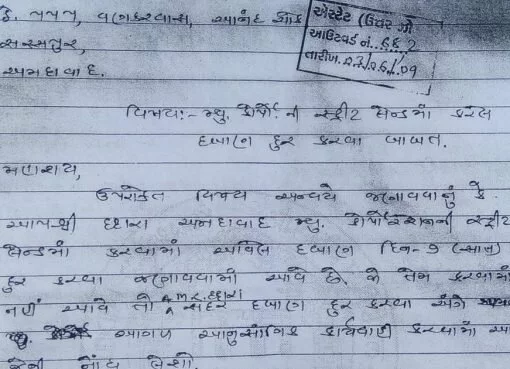 ઠે. ૧૫૧૧, વાઘેશ્વરવાસ, આનંદ ચોક
સરસપુર,
અમદાવાદ.
એસ્ટેટ (ઉત્તર ઝો
આઉટવર્ડ નં. ૬૬૨
તારીખ. ૨૩/૨૬/09
વિષય:- મ્યુ. કોર્પો. ની સ્ટ્રીટ લેન્ડમાં કરેલ
દબાણ દુર કરવા બાબત.
મહાશય,
ઉપરોકત વિષય અન્વયે જણાવવાનું કે
આપશ્રી દ્વારા અમદાવાદ મ્યુ. કોર્પોરેશનની સ્ટ્રીટ
લેન્ડમાં કરવામાં આવેલ દબાણ દિન-૭ (સાત)
દુર કરવા જણાવવામાં આવે છે. જો તેમ કરવામાં
નહીં આવે તો A.M.C. દ્વારા સદર દબાણ દુર કરવા અંગે
આગળ આનુસાંગિક કાર્યવાહી કરવામાં આ
જેની નોંધ લેશો.